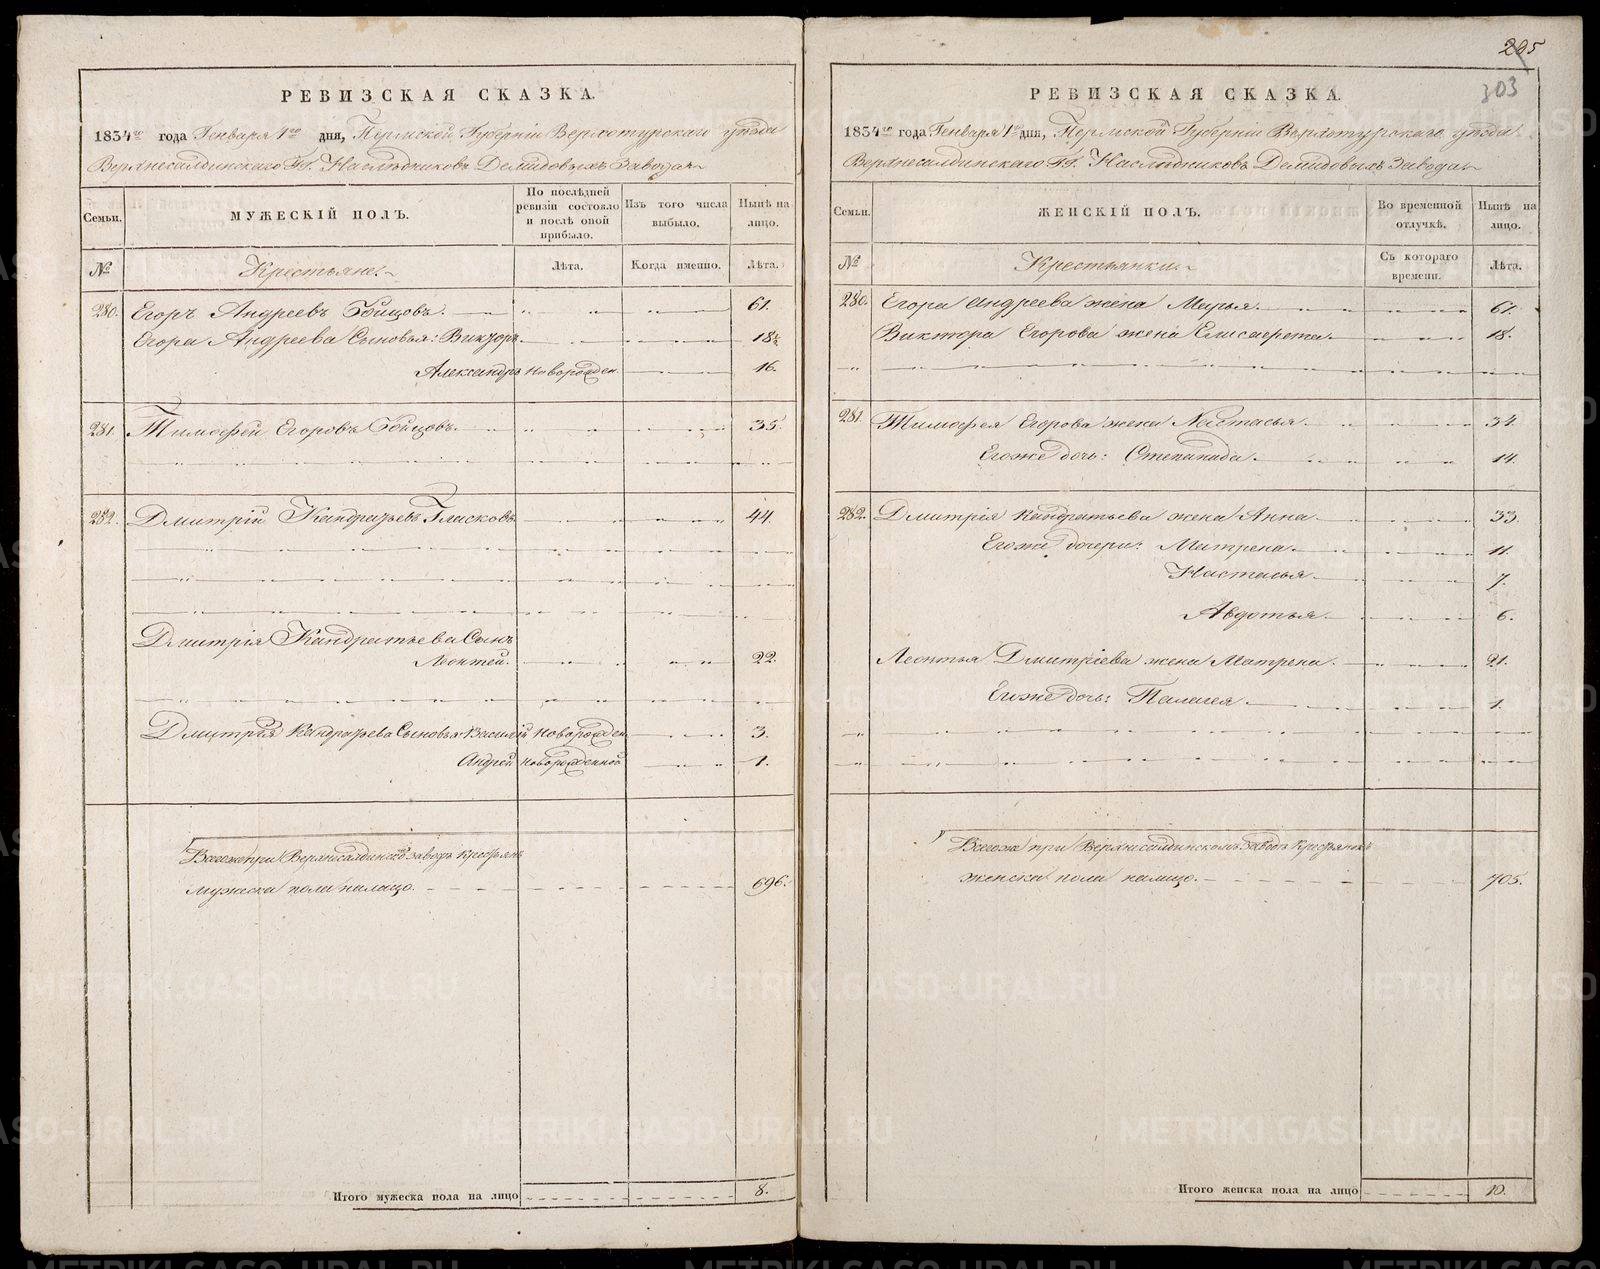 205
303
РЕВИЗСКАЯ СКАЗКА.
1834го года Генваря 1го дня, Пермской Губерніи Верхотурскаго уѣзда
Верхнесалдинскаго ГГ. Наслѣдниковъ Демидовыхъ Завода
Семьи.
МУЖЕСКІЙ ПОЛЪ.
По послѣдней ревизіи состояло и послѣ оной прибыло.
Изъ того числа выбыло.
Нынѣ на лицо.
№
Крестьяне.
Лѣта.
Когда именно.
Лѣта.
280. Егоръ Андреевъ 61.
Егора Андреева Сыновья: Викторъ 18½
Александръ новорожден. 16.
281. Тимофей Егоровъ 35.
282. Дмитрій Кандратьевъ Глисковъ 44.
Дмитрія Кандратьева Сынъ
Леонтей. 22.
Дмитрія Кандратьева Сыновья: Василій новорожден. 3.
Андрей новорожденной 1.
Всего при Верхнесалдинскомъ заводѣ крестьянъ
мужеска пола налицо. 696.
Итого мужеска пола на лицо 8.
РЕВИЗСКАЯ СКАЗКА.
1834го года Генваря 1го дня, Пермской Губерніи Верхотурскаго уѣзда
Верхнесалдинскаго ГГ. Наслѣдниковъ Демидовыхъ Завода
Семьи.
ЖЕНСКІЙ ПОЛЪ.
Во временной отлучкѣ.
Нынѣ на лицо.
№
Крестьянки.
Съ котораго времени.
Лѣта.
280. Егора Андреева жена Марья. 61.
Виктора Егорова жена Елисафета. 18.
281. Тимофея Егорова жена Настасья. 34.
Егоже дочь: Степанида. 14.
282. Дмитрія Кандратьева жена Анна 33.
Егоже дочери: Матрена. 11.
Настасья. 7.
Авдотья. 6.
Леонтья Дмитріева жена Матрена. 21.
Егоже дочь: Палагея. 1.
Всего при Верхнесалдинскомъ Заводѣ Крестьянокъ
женска пола налицо. 705.
Итого женска пола на лицо 10.
METRIKI.GASO-URAL.RU